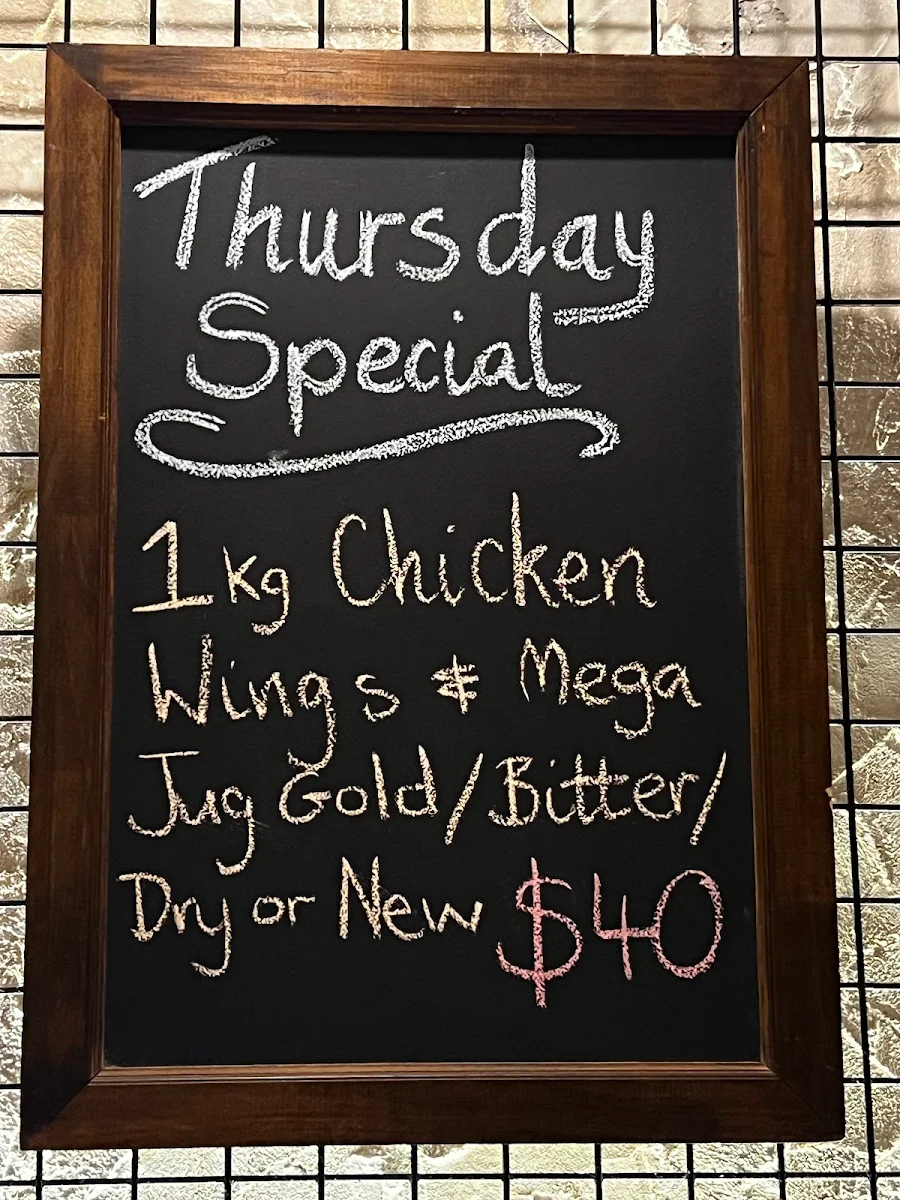 Thursday
Special
1kg Chicken
Wings & Mega
Jug Gold/Bitter/
Dry or New $40